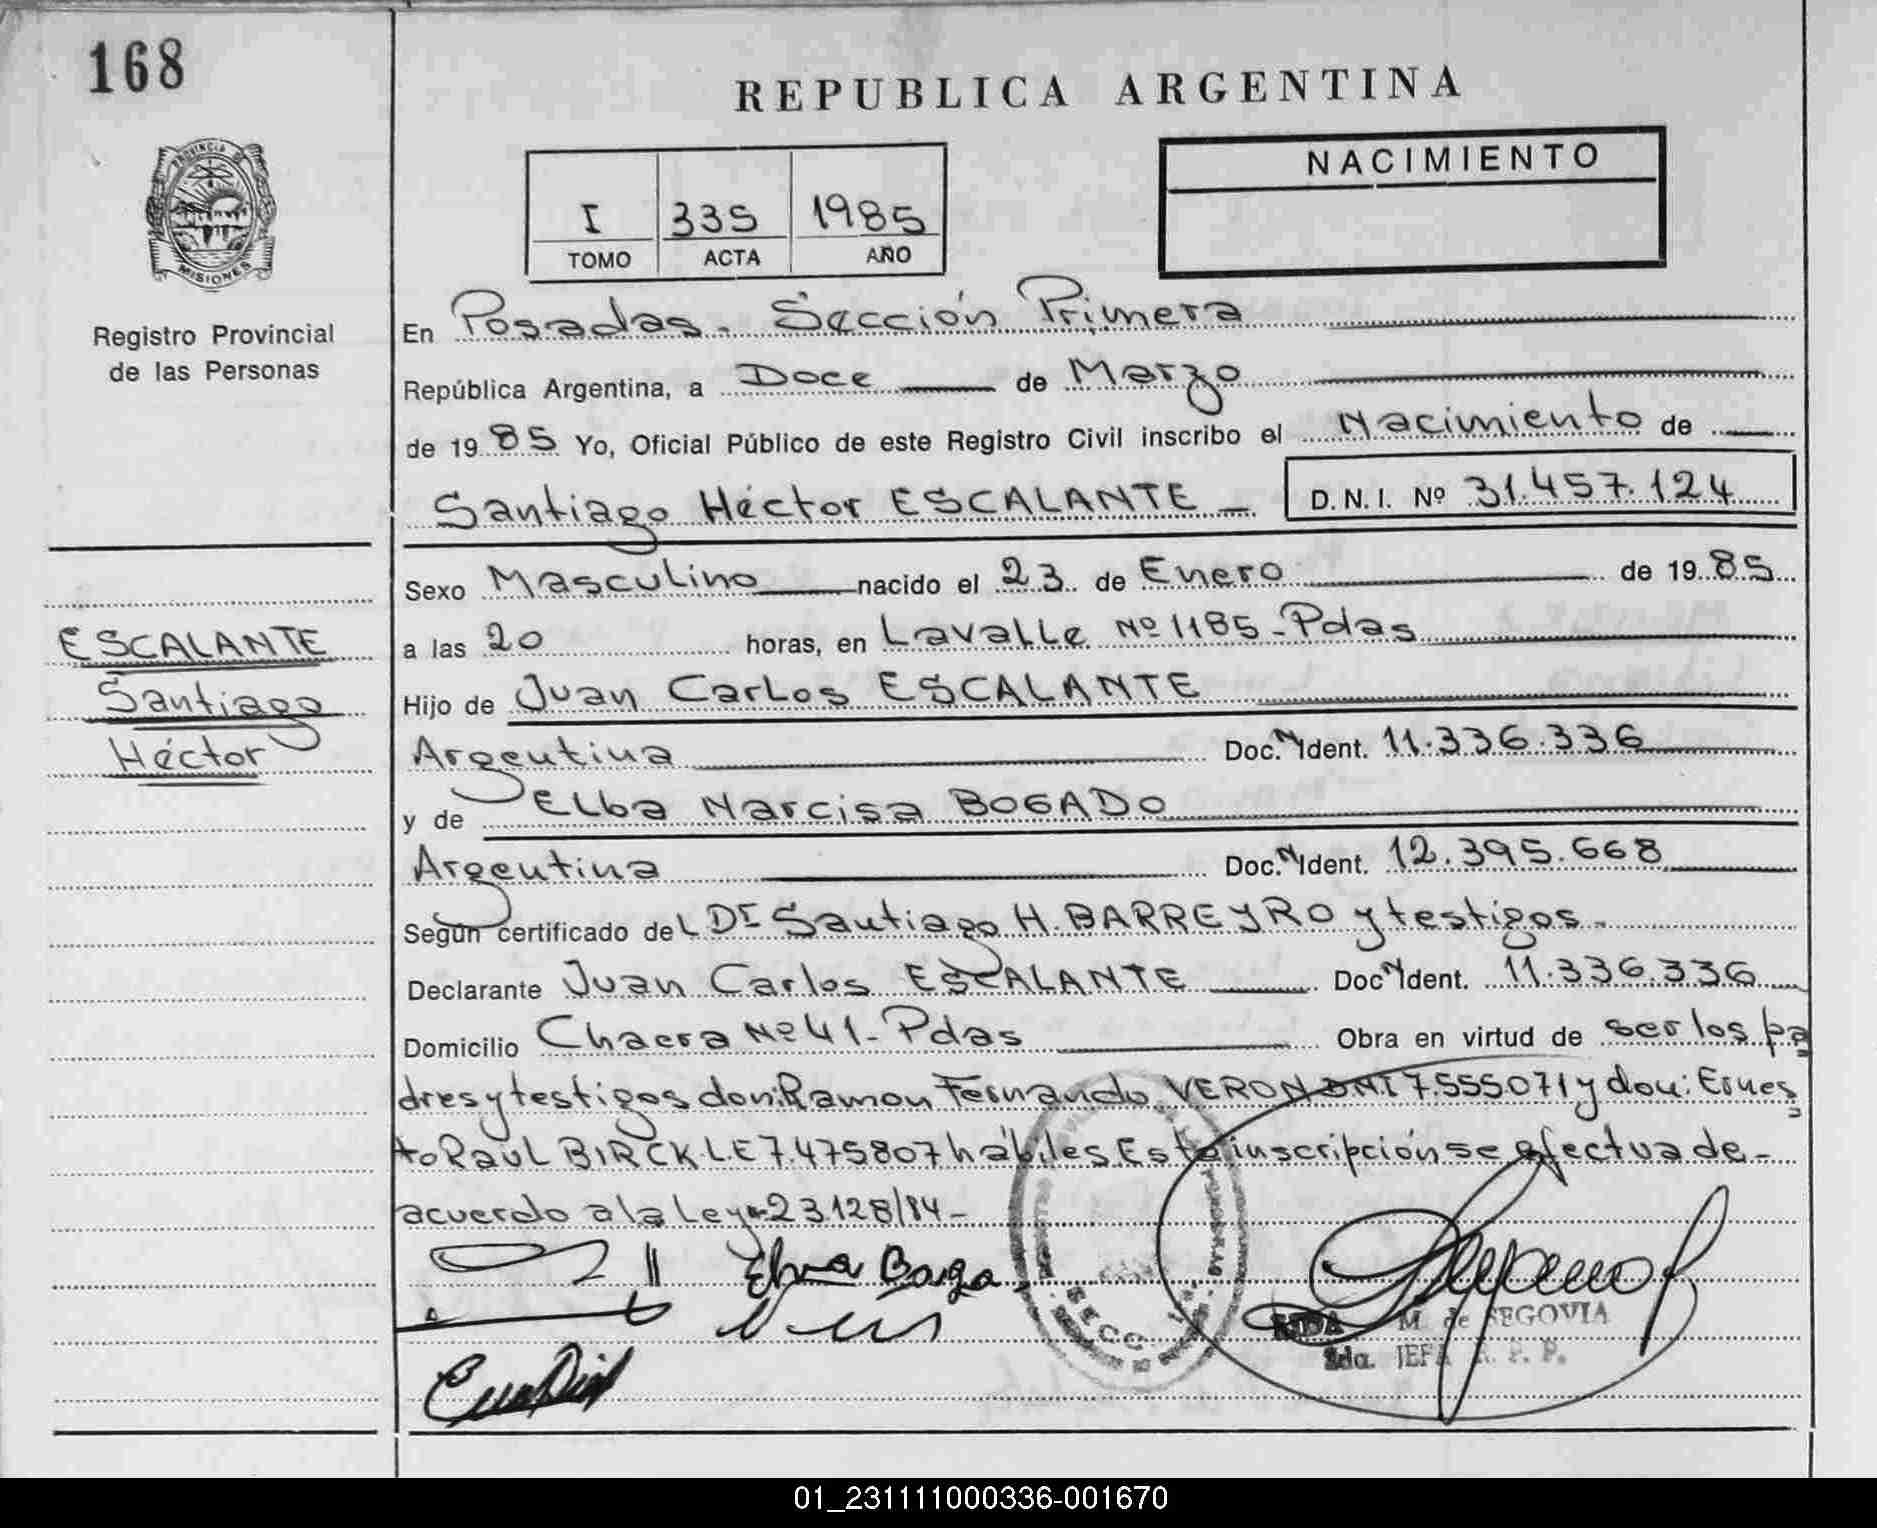 168
REPUBLICA ARGENTINA
PROVINCIA DE
MISIONES
Registro Provincial
de las Personas
I 335 1985
TOMO ACTA AÑO
NACIMIENTO
En Posadas. Sección Primera
República Argentina, a Doce de Marzo
de 1985 Yo, Oficial Público de este Registro Civil inscribo el Nacimiento de
Santiago Héctor ESCALANTE - D. N. I. Nº 31.457.124
Sexo Masculino nacido el 23 de Enero de 1985
ESCALANTE
Santiago
Héctor
a las 20 horas, en Lavalle Nº 1185 - Pdas
Hijo de Juan Carlos ESCALANTE
Argentina Doc. N Ident. 11.336.336
y de Elba Narcisa BOGADO
Argentina Doc. N Ident. 12.395.668
Según certificado del Dr Santiago H. BARREYRO y testigos.
Declarante Juan Carlos ESCALANTE Doc N Ident. 11.336.336
Domicilio Chacra Nº 41 - Pdas Obra en virtud de ser los pa
dres y testigos don: Ramon Fernando VERON DNI 7.555071 y don: Ernes
to Raul BIRCK L.E 7.475807 hábiles. Esta inscripción se efectua de -
acuerdo a la Ley 23.128/84 -
SECC. 1a.
M. de SEGOVIA
2da. JEFA R. P. P.
01_231111000336-001670